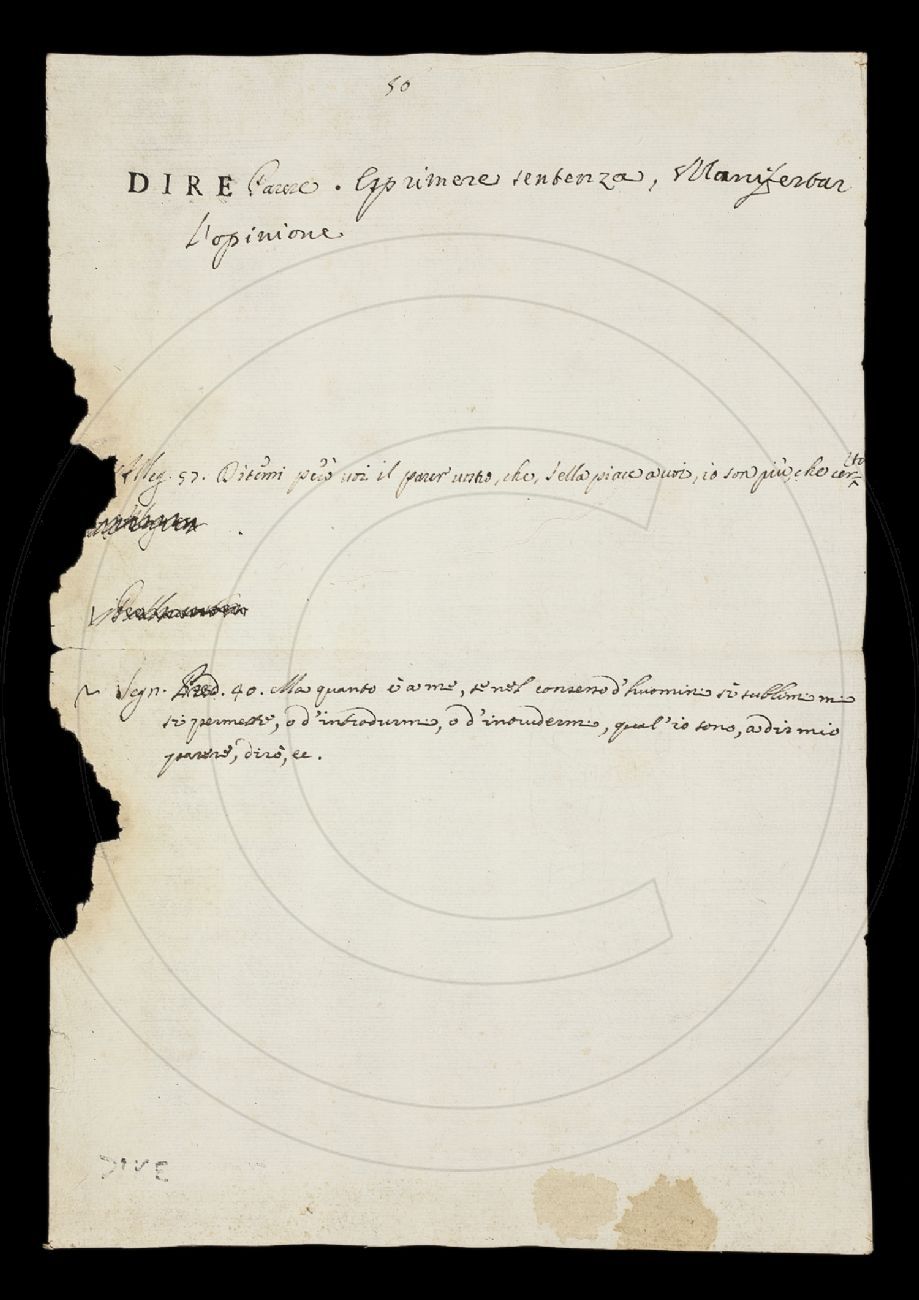 50
DIRE Parere. Esprimere sentenza, Manifestar
L'opinione
Alleg. 57. Ditemi però voi il parer vostro, che, s'ella piace a voi, io son più, che certo
Segn. Pred. 40. Ma quanto è a me, se nel consesso d'huomini sì sublimi mi
si permette, o d'introdurmi, o d'intrudermi, qual'io sono, a dir mio
parere, dirò, ec.